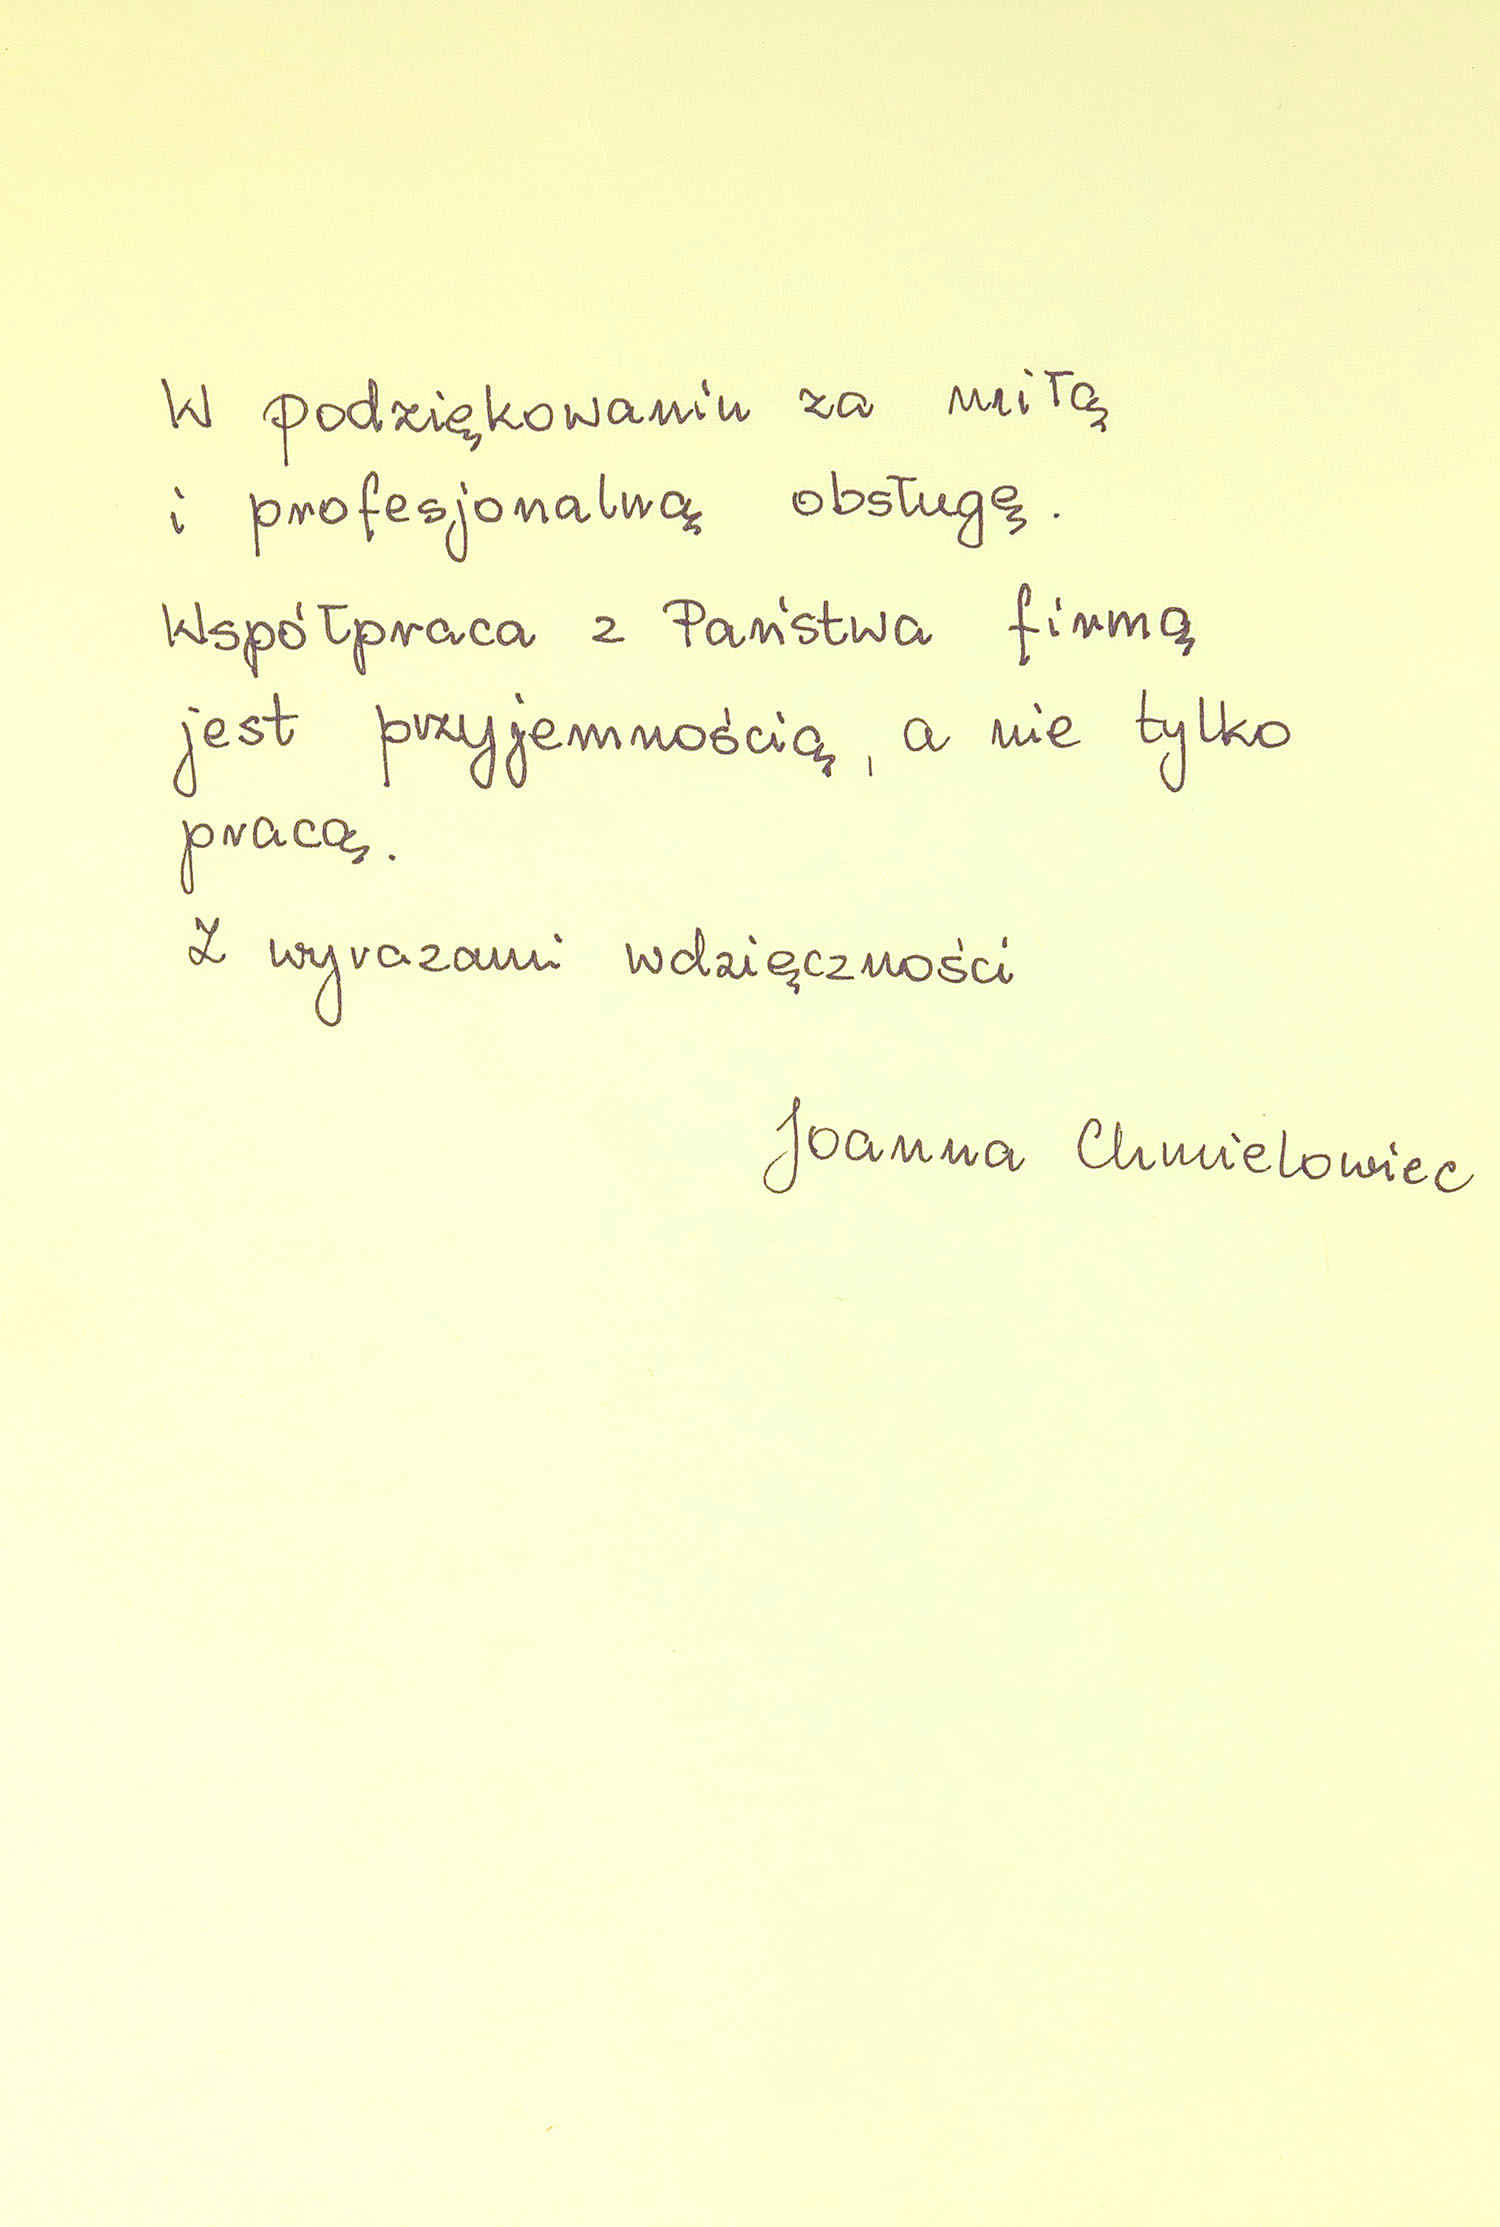 W podziękowaniu za miłą
i profesjonalną obsługę.
Współpraca z Państwa firmą
jest przyjemnością, a nie tylko
pracą.
Z wyrazami wdzięczności
Joanna Chmielowiec